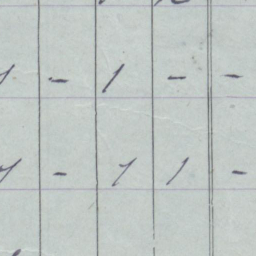 1 - 1 - -
1 - 1 1 -